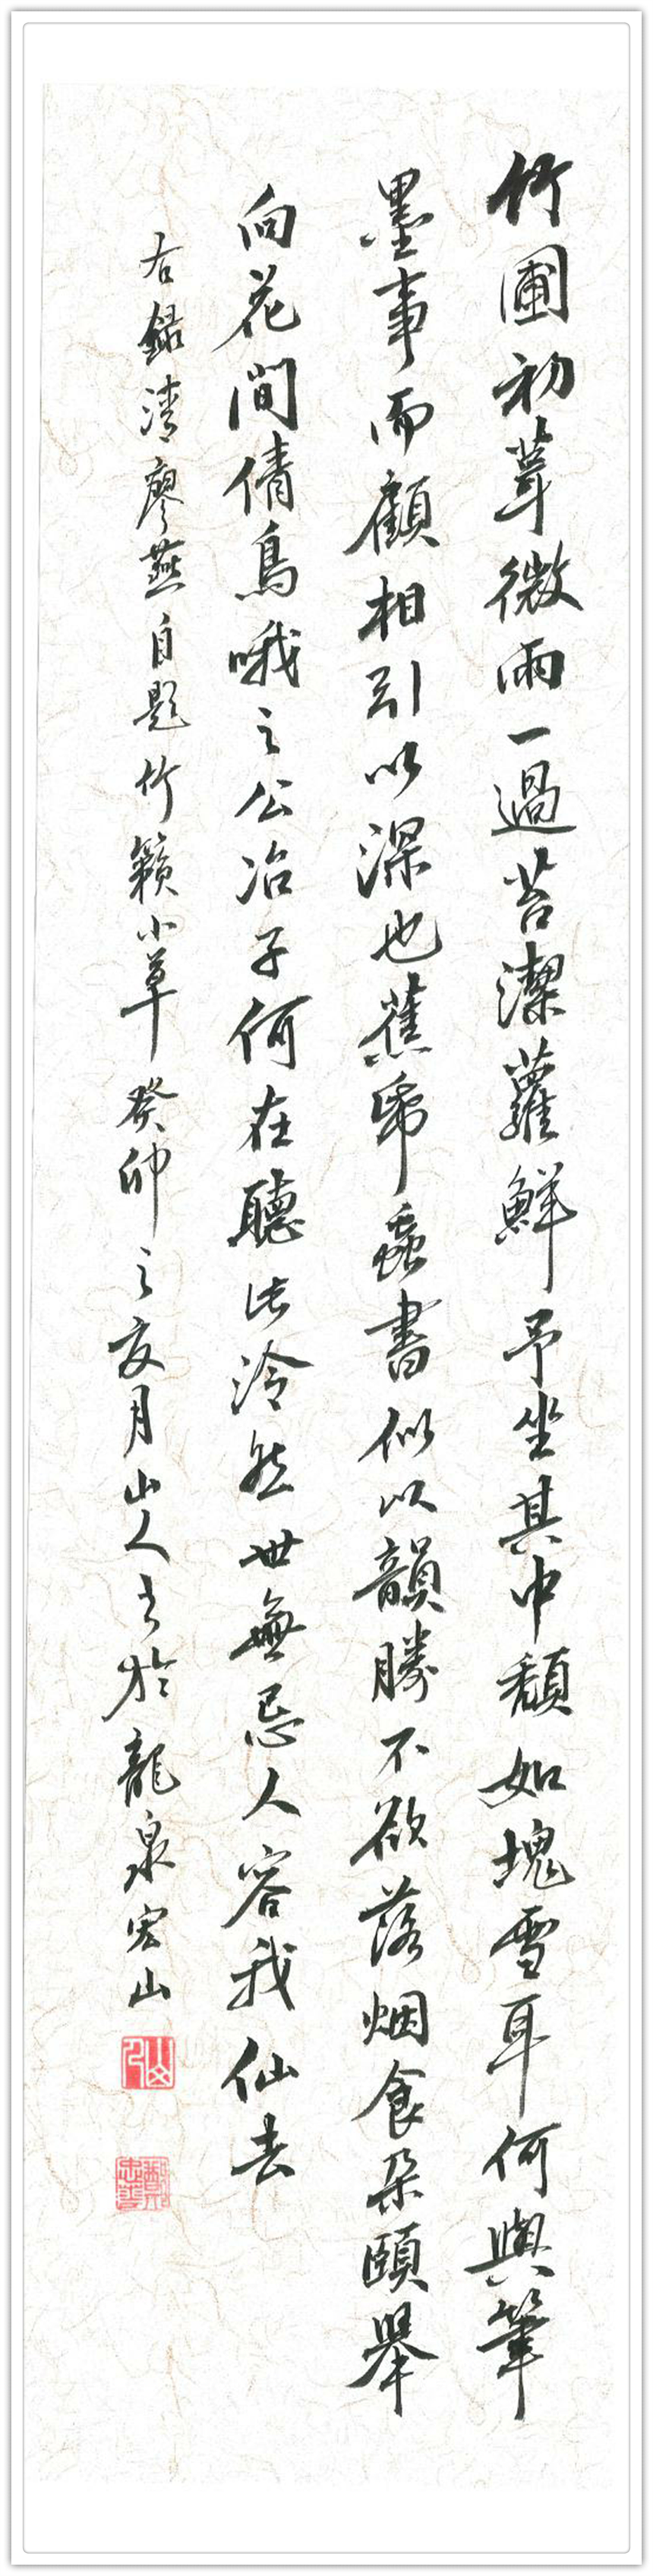 竹圃初葺微雨一過苔潔蘿鮮予坐其中頹如塊雪耳何與筆
墨事而顧相引以深也蕉號蟲書似以韻勝不欲落烟食朵頤舉
向花間倩鳥哦之公冶子何在聽此泠然世無忌人容我仙去
右錄清廖燕自題竹籟小草癸卯之夜月山人書於龍泉宏山